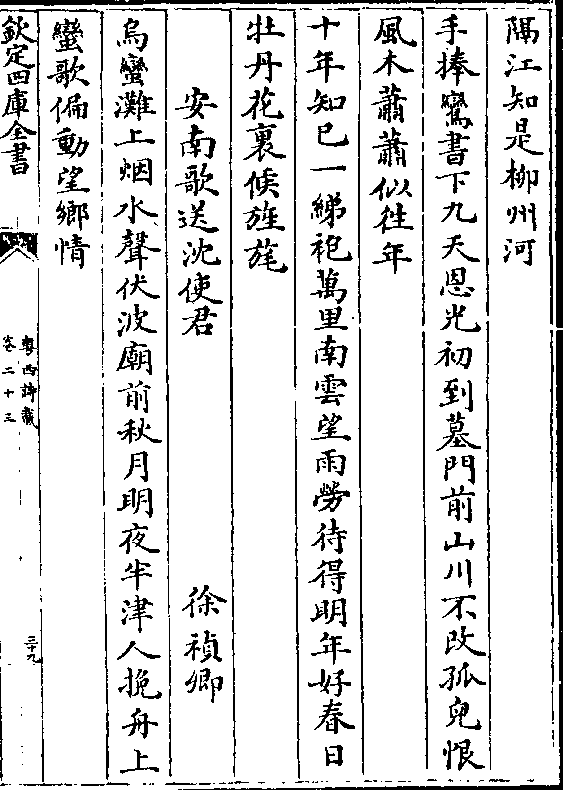 隔江知是柳州河
手捧鸞書下九天恩光初到墓門前山川不改孤兒恨
風木蕭蕭似徃年
十年知已一綈袍萬里南雲望雨勞待得明年好春日
牡丹花裏候旌旄
安南歌送沈使君　徐禎卿
烏蠻灘上烟水聲伏波廟前秋月明夜半津人挽舟上
蠻歌偏動望鄉情
欽定四庫全書
粵西詩載
卷二十三
三十九